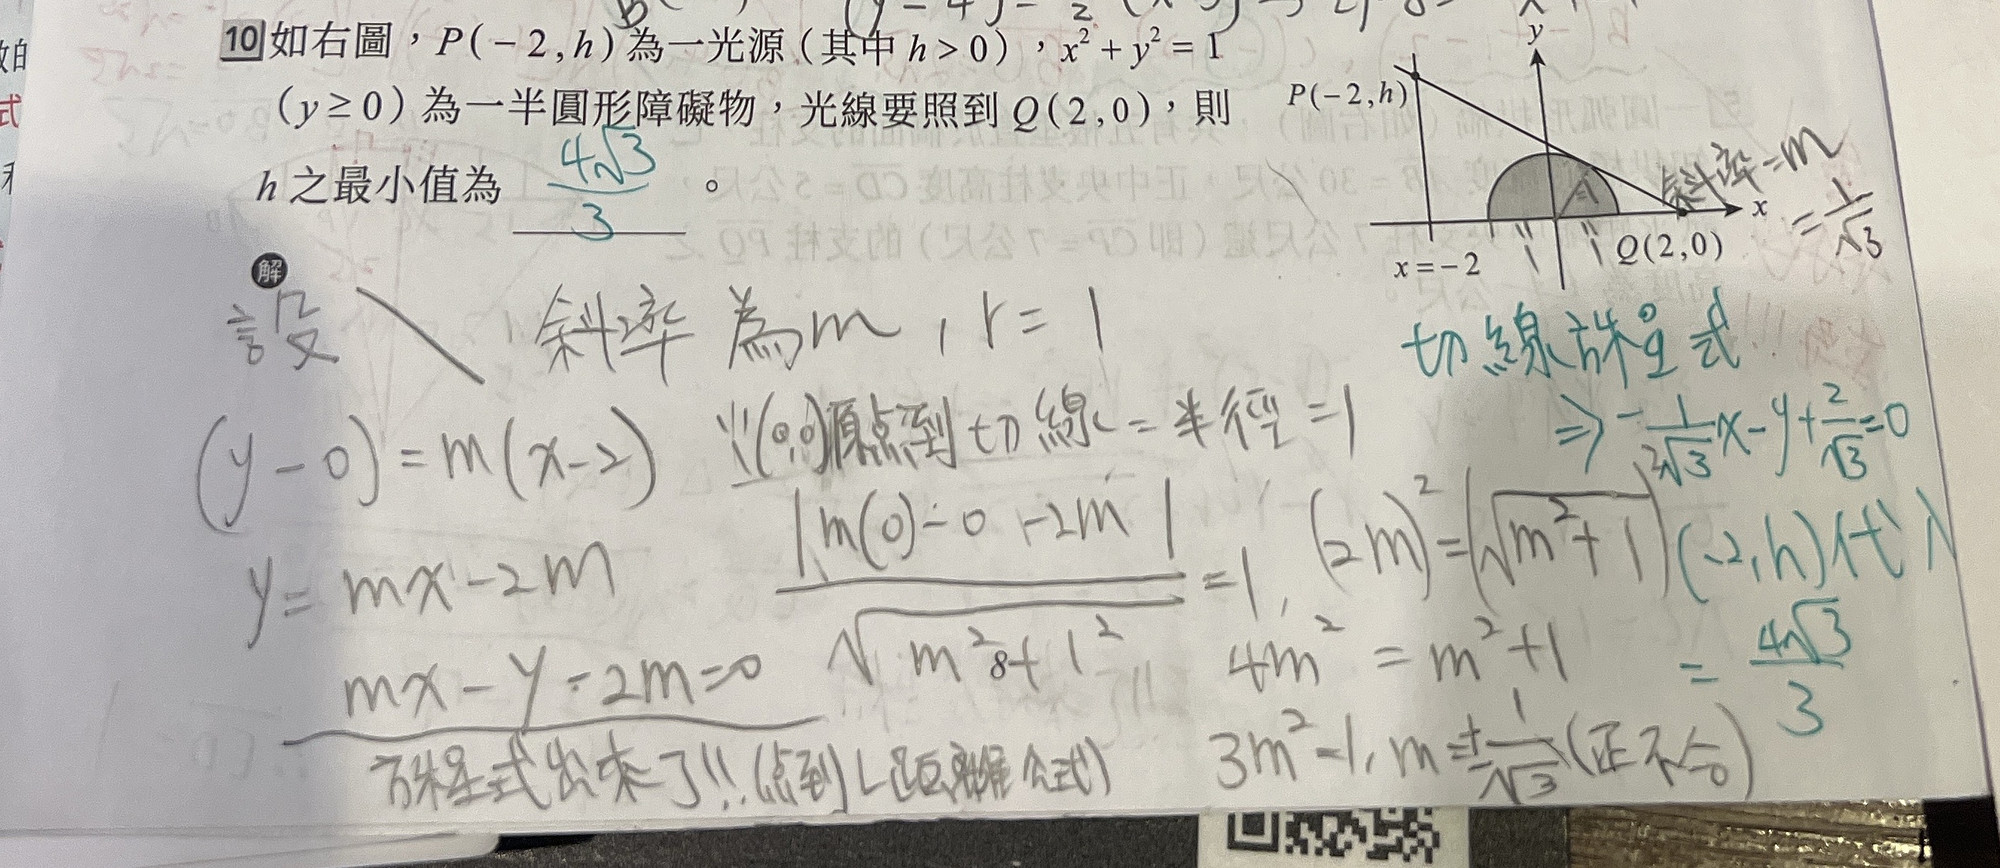 10 如右圖，P(-2,h)為一光源（其中 h>0），x²+y²=1
（y≥0）為一半圓形障礙物，光線要照到 Q(2,0)，則
h 之最小值為 4√3/3 。
y
P(-2,h)
x
Q(2,0)
x=-2
斜率=m
=1/√3
解
設 \ 斜率為m，r=1
(y-0)=m(x-2)
y=mx-2m
mx-y-2m=0
方程式出來了!!(点到L距離公式)
∵(0,0)原点到切線=半徑=1
|m(0)-0-2m|/√m²+1² =1,
(2m)²=(√m²+1)
4m²=m²+1
3m²=1, m=±1/√3(正不合)
切線方程式
⇒-1/√3x-y+2/√3=0
(-2,h)代入
=4√3/3